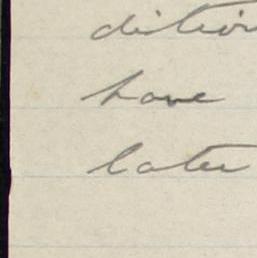 dition
have
later